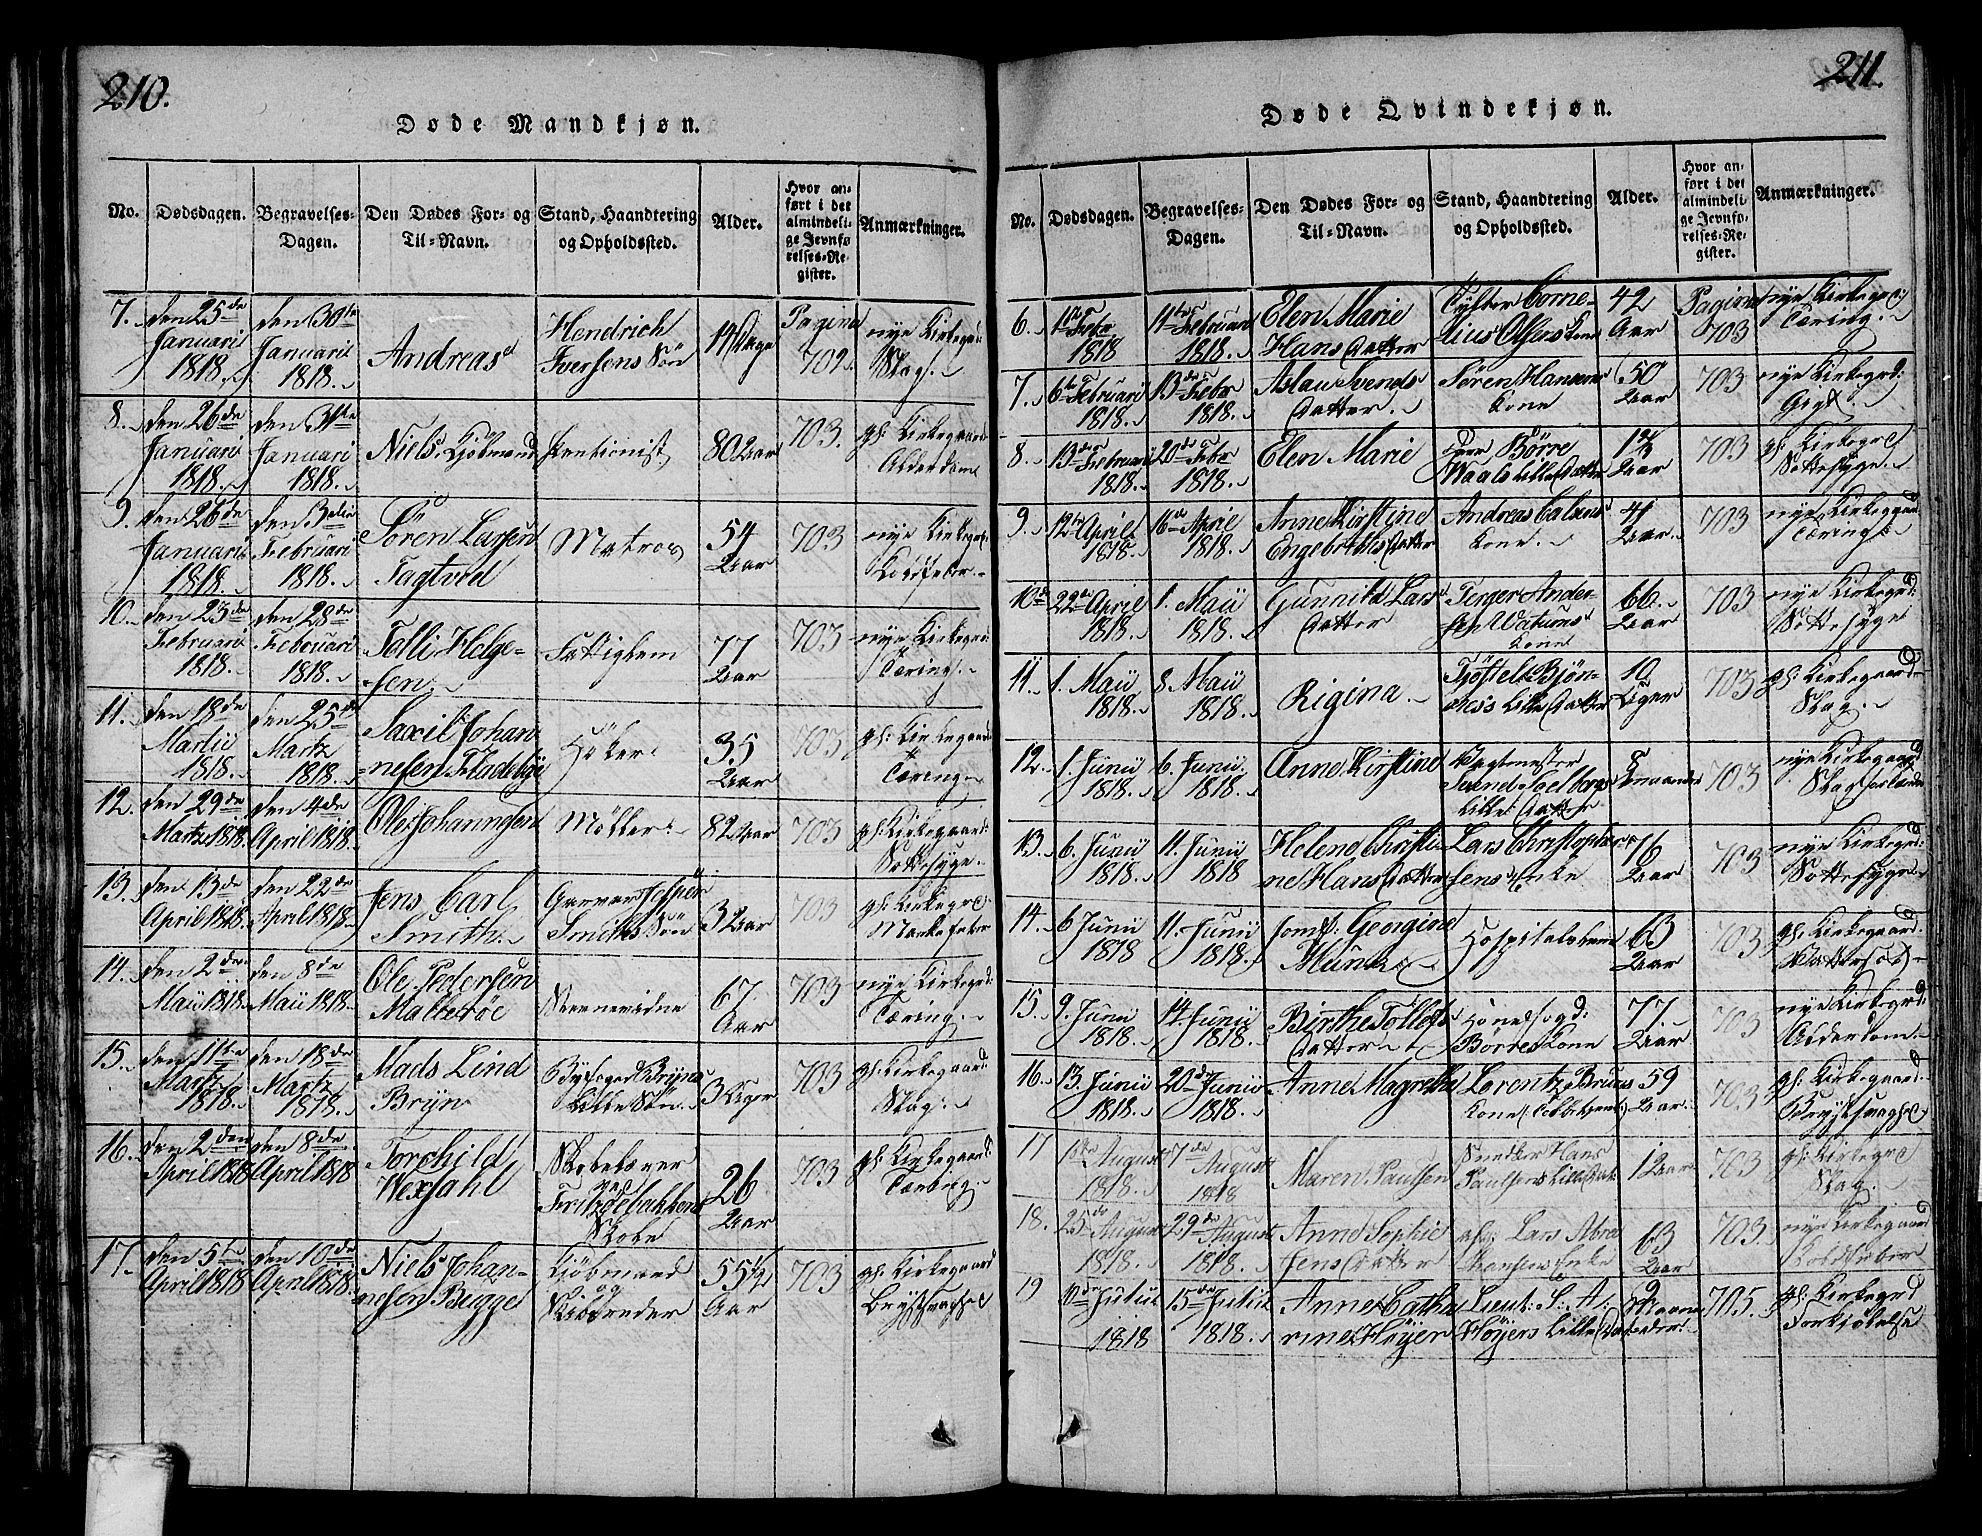 210.
Døde Mandkjøn.
No.
Dødsdagen.
Begravelses-
Dagen.
Den Dødes For- og
Til-Navn.
Stand, Haandtering
og Opholdssted.
Alder.
Hvor an-
ført i det
almindeli-
ge Jevnfø-
relses-Re-
gister.
Anmærkninger.
7. den 25de
Januarii
1818.
den 30te
Januarii
1818.
Andreas
Hendrich
Iversens Søn
14 Dage
Pagina
702.
nye Kirkegd:
Slag.
8. den 26de
Januarii
1818.
den 31te
Januari
1818.
Niels Kjøbmand
Pentionist
80 Aar
703.
gl: Kirkegaard
Alderdom
9. den 26de
Januarii
1818.
den 3die
Februari
1818.
Søren Larsen
Tagtved
Matros
54
Aar
703
nye Kirkegd
Koldfeber.
10. den 23de
Februari
1818.
den 28de
Februari
1818.
Tolli Helge-
sen
Fattighem
77
Aar
703
nye Kirkegrd:
Tæring.
11. den 18de
Martii
1818.
den 25de
Martz
1818.
Saxil Johan-
nesen Fladebye
Høker
35
Aar
703
gl: Kirkegaard
Tæring.
12. den 29de
Martz 1818.
den 4de
April 1818.
Ole Johannesen
Møller
82 Aar
703
gl: Kirkegaard:
Sottesyge.
13. den 13de
April 1818.
den 22de
April 1818.
Jens Carl
Smith.
Garver Jesper
Smiths Søn
3 Aar
703
gl: Kirkegrd
14. den 2den
Maii 1818.
den 8de
Maii 1818.
Ole Pedersen
Malleröe
67
Aar
703
nye Kirkegrd:
Tæring.
15. den 11te
Martz
1818.
den 18de
Martz
1818.
Mads Lind
Bryn
Byfoged Bryns
Lille Søn.
3 Uger
703
gl: Kirkegaard
Slag.
16. den 2den
April 1818
den 8de
April 1818
Torchild
Wexsahl
ved
26
Aar
703
gl: Kirkegaard
17. den 5te
April 1818
den 10de
April 1818.
Niels Johan-
nesen Bugge
Kjøbmand
og
Skibsreder
55 1/2
Aar
703
gl: Kirkegaard
Brystsvaghed
211.
Døde Qvindekjøn.
No.
Dødsdagen.
Begravelses-
Dagen.
Den Dødes For- og
Til-Navn.
Stand, Haandtering
og Opholdssted.
Alder.
Hvor an-
ført i det
almindeli-
ge Jevnfø-
relses-Re-
gister.
Anmærkninger.
6.
Febr
1818
11te Februari
1818.
Elen Marie
Hans Datter
Corne-
lius Olsens Kone
42
Aar
Pagina
703
nye Kirkegrd:
Tæring.
7. 6te Februari
1818.
13de Febr
1818.
Aslau Svends
Datter.
Søren Hansens
Kone
50
Aar
703
nye Kirkegrd:
Gigt
8. 13de Februari
1818.
20de Febr
1818.
Elen Marie
Børre
Waals Lille Datter
Aar
703
gl: Kirkegrd
Sottesyge.
9. 12te April
1818.
16de April
1818.
Anne Kirstine
Engebrethts Datter
Andreas
Kone.
41
Aar.
703
nye Kirkegaard
Tæring.
10de 22de April
1818.
1. Maii
1818.
Gunnild Lars
Datter
Terger Ander-
sen Watums
Kone
66.
Aar
703
nye Kirkegrd:
Sottesyge
11. 1. Maii
1818.
8. Maii
1818.
Rigina.
Tjøstel Bjøn-
Lille Datter
10
Uger
703
gl: Kirkegaard
Slag.
12. 1. Junii
1818.
6. Junii
1818.
Anne Kirstine
Vagtmester
Svend Soelbergs
Lille Datter
703
nye Kirkegaard
Slag
13. 6. Junii
1818.
11. Junii
1818
Helene Christi-
ne Hans Datter
Lars Christopher-
sens Enke
76
Aar
703
nye Kirkegrd:
Sottesyge
14. 6 Junii
1818
11. Junii
1818.
Jomf: Georgine
Münk
Hospitalslem
63
Aar
703
gl: Kirkegaard.
Vattersot
15. 9. Junii
1818.
14. Junii
1818.
Birthe Tollefs
Datter
Borres Kone
77
Aar
703
nye Kirkegrd:
Alderdom.
16. 13. Junii
1818.
20de Junii
1818.
Anne Magrethe
Lorentz Bruns
Kone
59
Aar.
703
gl: Kirkegaard.
Brystsvaghed
17 August
1818.
7de August
1818
Maren Paulsen
Snedker Hans
Paulsens Lille Datter
1 Aar
703
gl: Kirkegrd
Slag.
18. 25de August
1818.
29de August
1818.
Anne Sophie
Jens Datter
afg: Lars Abra-
hamsens Enke
63
Aar
703.
nye Kirkegaard
Koldfeber
19 10de Julii
1818
15de Julii
1818.
Anne Catha-
rine Høyer
Lieut: S: A:
Høyers Lille Datter
9
Maaneder
705.
gl: Kirkegrd
Forkjølelse